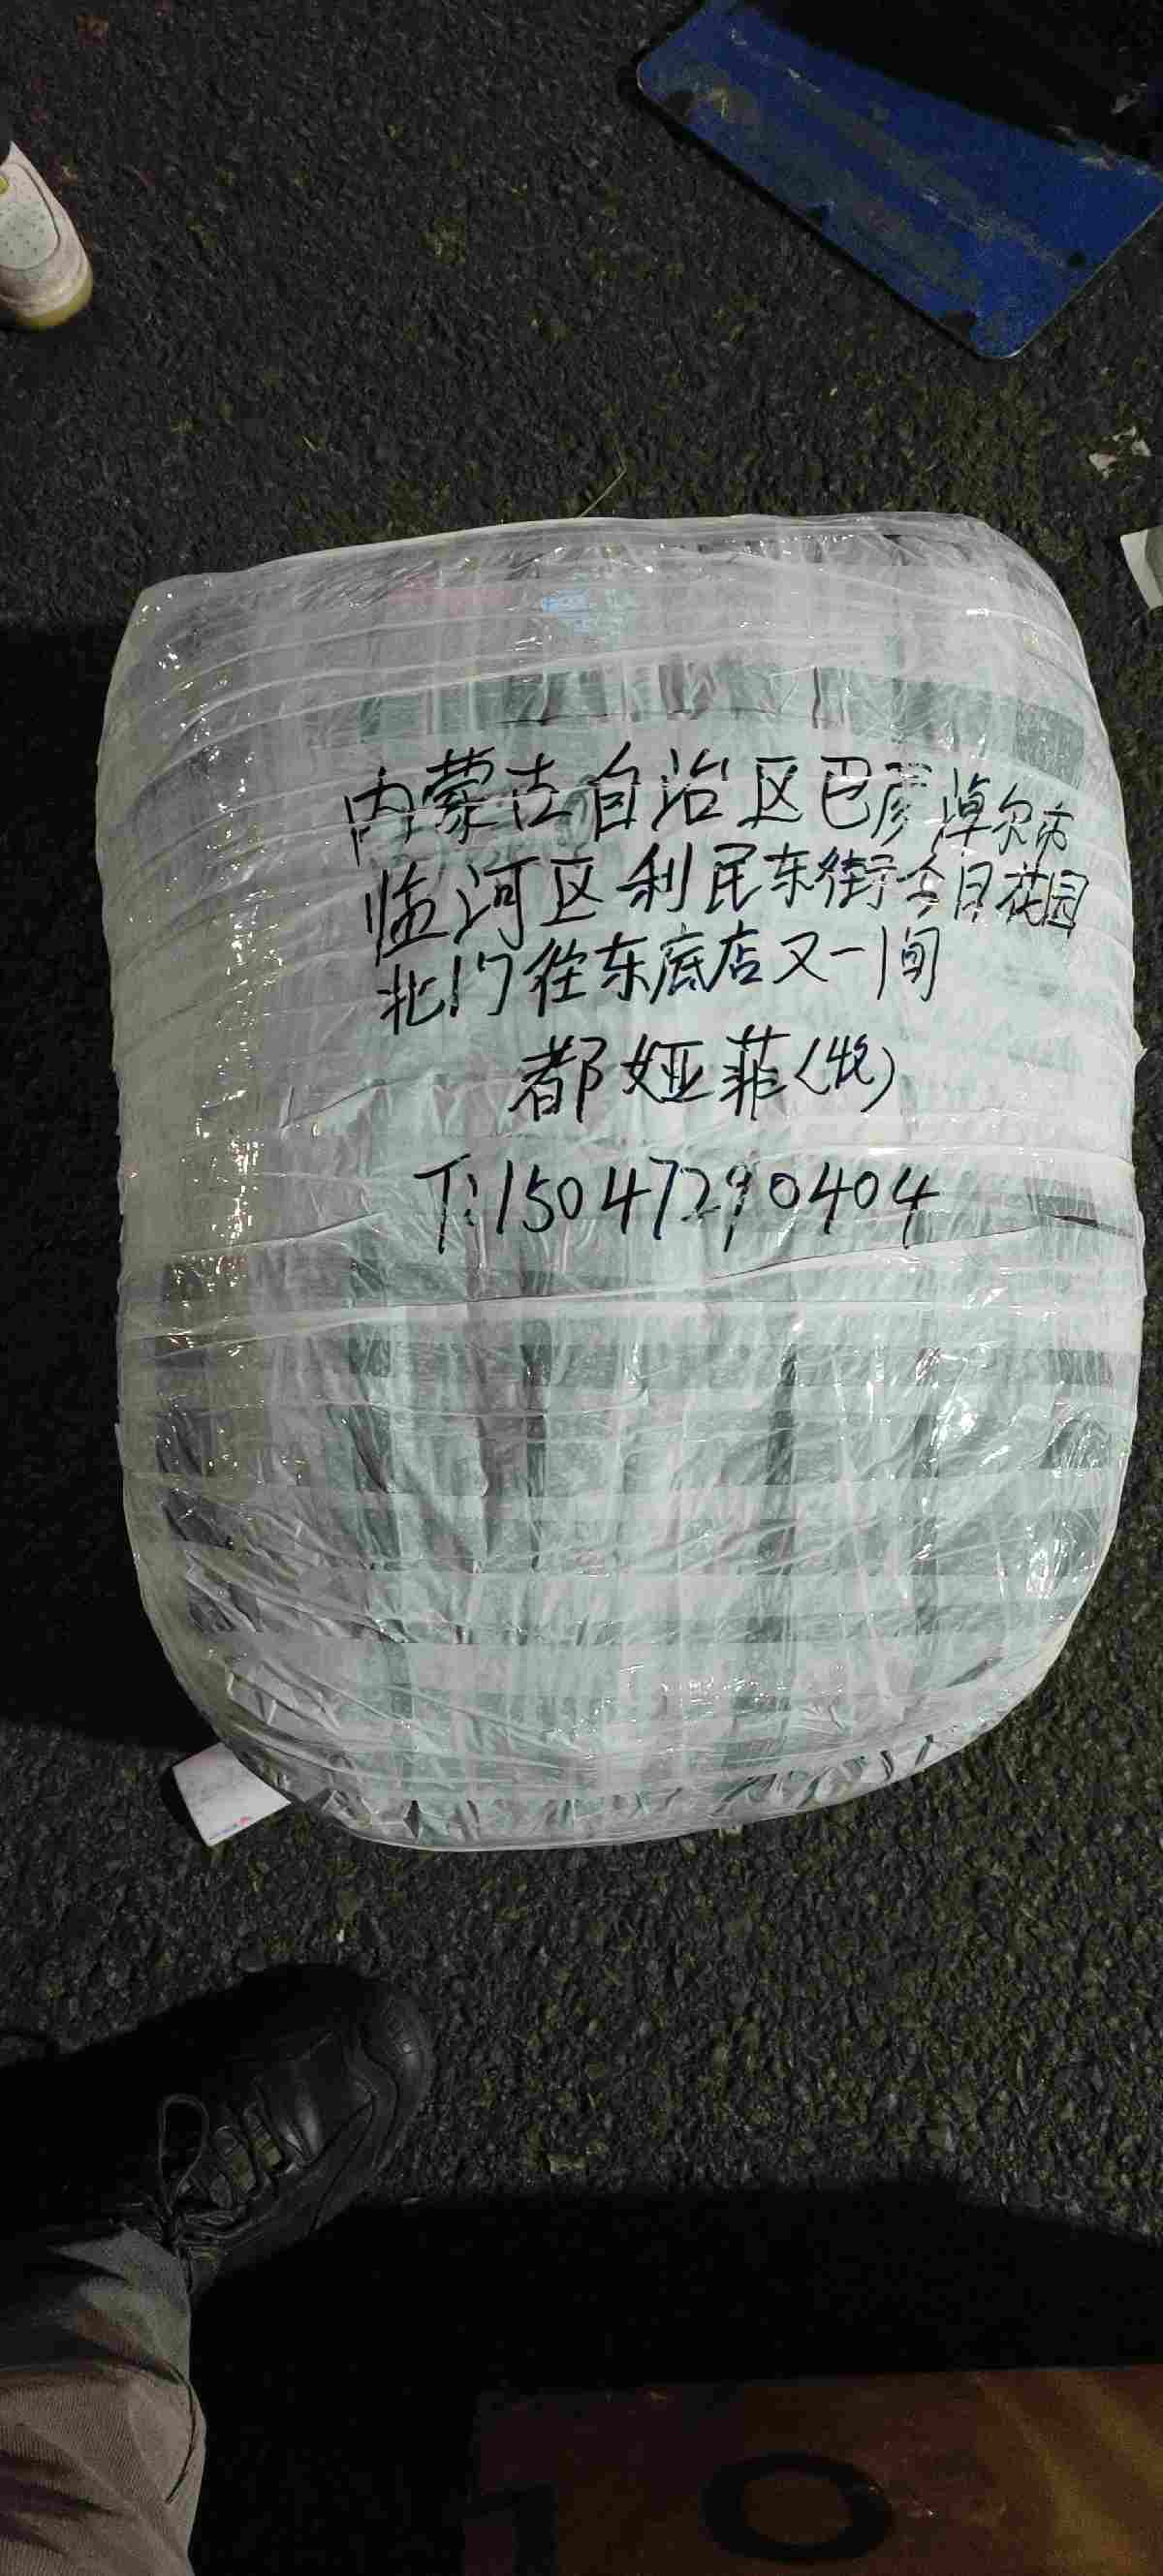 内蒙古自治区巴彦淖尔市
临河区利民东街今日花园
北门往东底店又一间
都娅菲(收)
T:15047290404
10